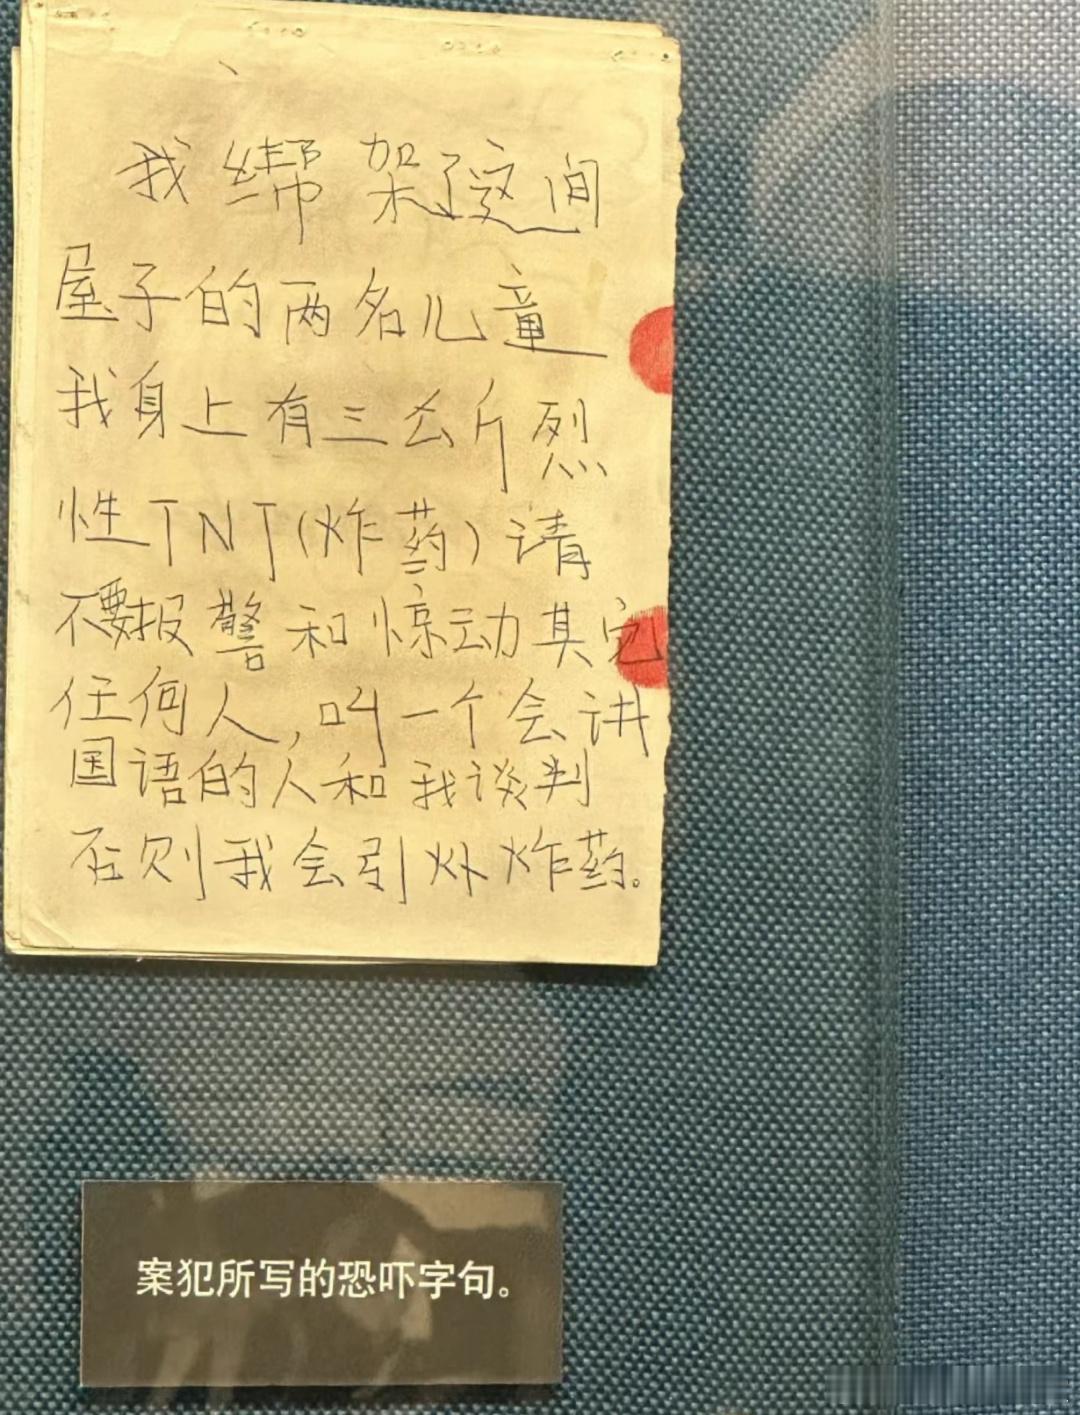 我绑架了这间
屋子的两名儿童
我身上有三公斤烈
性TNT(炸药)请
不要报警和惊动其它
任何人,叫一个会讲
国语的人和我谈判
否则我会引炸炸药。
案犯所写的恐吓字句。